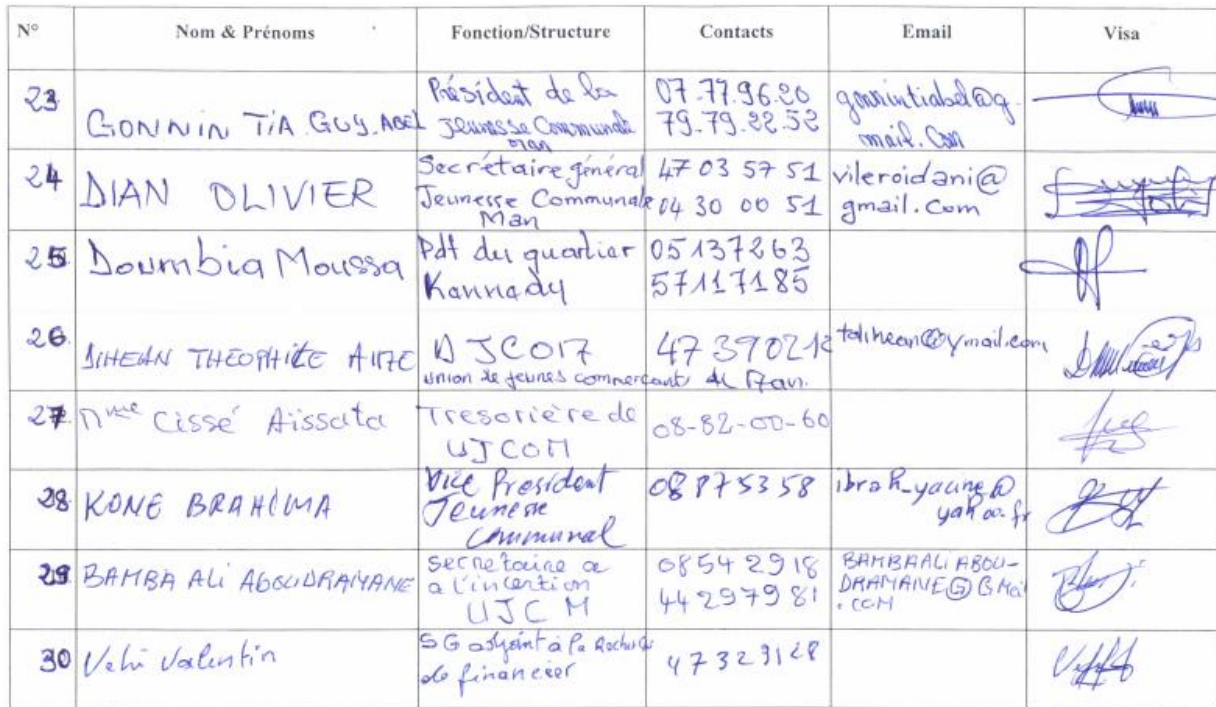 N° Nom & Prénoms Fonction/Structure Contacts Email Visa
23 GONNIN TIA GUY ABEL Président de la Jeunesse Communale Man 07.77.96.20 79.79.22.52 gonnintiabel@gmail.com
24 DIAN OLIVIER Secrétaire général Jeunesse Communale Man 47 03 57 51 04 30 00 51 vileroidani@gmail.com
25 Doumbia Moussa Pdt du quartier Kennedy 05137263 57117185
26 THEOPHILE UJCOM union de jeunes commerçants de Man. 47390212 @ymail.com
27 Mme Cissé Aïssata Tresorière de UJCOM 08-82-00-60
28 KONE BRAHIMA Vice President Jeunesse Communal 08 87 53 58 ibrah_yacine@yahoo.fr
29 BAMBA ALI ABOUDRAMANE secretaire a a l'incertion UJCM 08542918 44297981 BAMBAALIABOU-DRAMANE@GMail.COM
30 Valentin SG adjoint à la Recherche de financier 47329128